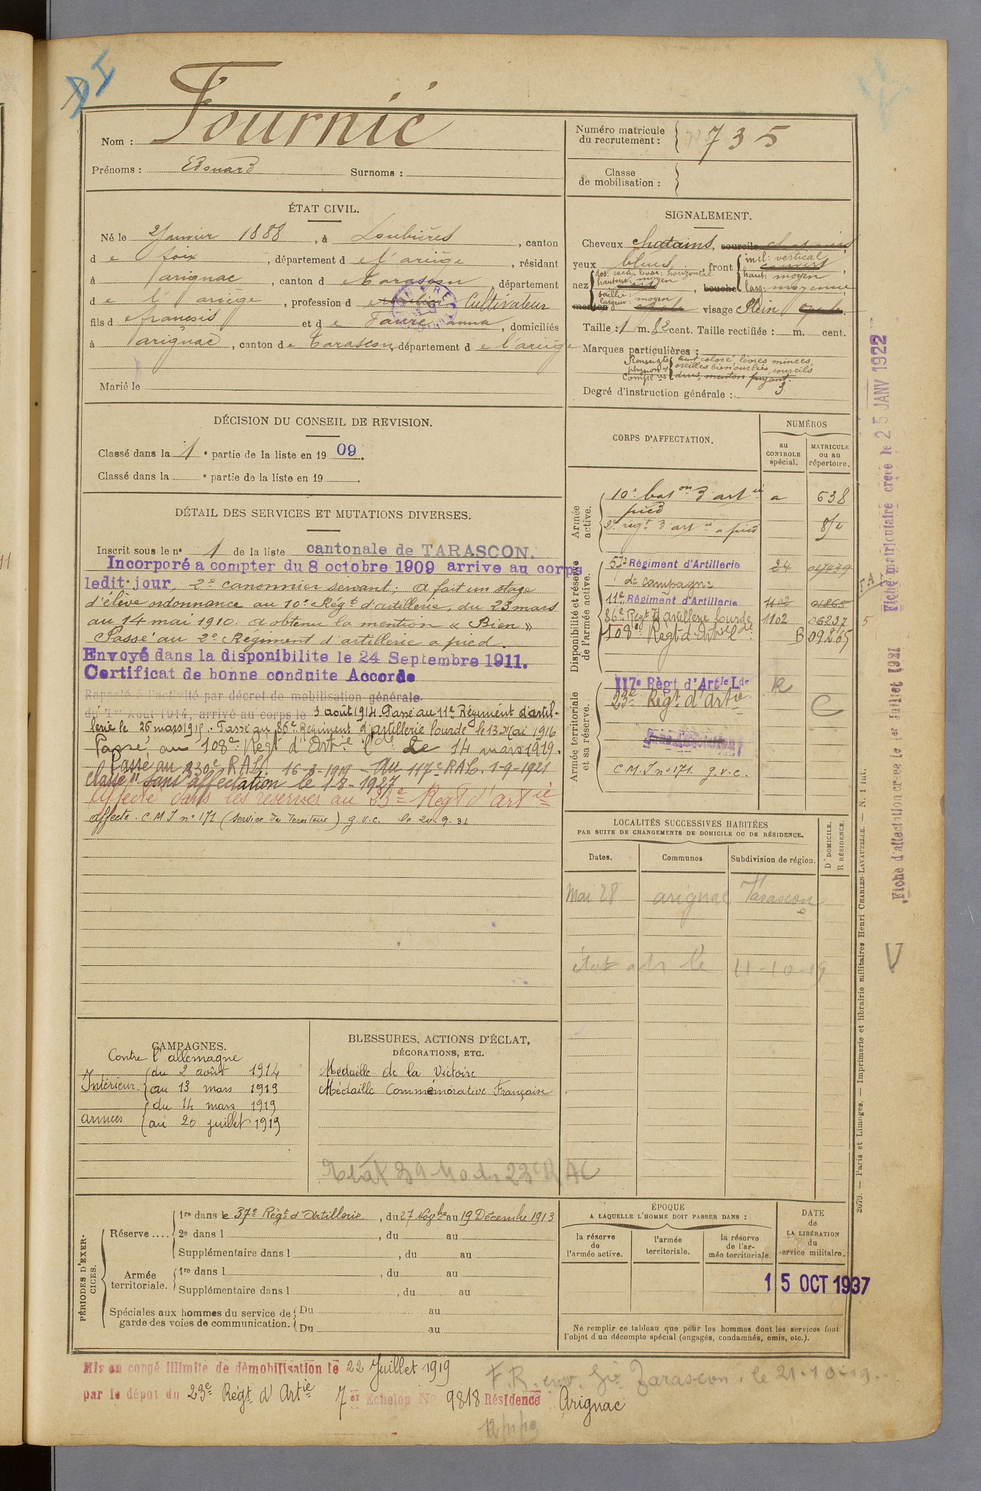 DI
Nom : Fournié
Prénoms : Edouard Surnoms :
Numéro matricule du recrutement : 735
Classe de mobilisation :
ÉTAT CIVIL.
Né le 2 Janvier 1888, à Loubières, canton
d e foix, département d e l'ariège, résidant
à arignac, canton d e Tarascon département
d e l'ariège, profession d Cultivateur
fils d e françois et d e Faure anna, domiciliés
à arignac, canton d e Tarascon, département d e l'ariège
Marié le
SIGNALEMENT.
Cheveux chatains, sourcils chatains
yeux bleus, front incl: vertical
haut: moyen
larg: moyenne
nez dos: horizontal
hauteur: moyen
saillie:
largeur: moyen
bouche
menton visage Plein
Taille : 1 m. 62 cent. Taille rectifiée : m. cent.
Marques particulières :
teint coloré, lèvres minces,
oreilles bien ourlées, sourcils
drus, menton fuyant
Degré d'instruction générale : 3
DÉCISION DU CONSEIL DE REVISION.
Classé dans la 1 e partie de la liste en 1909.
Classé dans la e partie de la liste en 19
DÉTAIL DES SERVICES ET MUTATIONS DIVERSES.
Inscrit sous le n° 1 de la liste cantonale de TARASCON.
Incorporé a compter du 8 octobre 1909 arrive au corps
ledit jour, 2e canonnier servant; A fait un stage
d'élève ordonnance au 10e Régt d'artillerie, du 23 mars
au 14 mai 1910. a obtenu la mention « Bien »
Passé au 2e Régiment d'artillerie a pied.
Envoyé dans la disponibilite le 24 Septembre 1911.
Certificat de bonne conduite Accordé
Rappelé à l'activité par décret de mobilisation générale.
du 1er Aout 1914, arrivé au corps le 3 août 1914. Passé au 11e Régiment d'artil-
lerie le 26 mars 1915. Passé au 86e Régiment d'artillerie lourde le 13 Mai 1916
Passé au 108e Régt d'Artie Lde le 14 mars 1919.
Passé au 230e RAL 16-3-1919 au 117e RAL. 1-9-1921
classé "sans affectation le 1-8-1927
Affecté dans les réserves au 23e Régt d'artie
affecté. C.M.I n° 171 (Service du Territoire) g.v.c. le 20.9.31
CORPS D'AFFECTATION.
NUMÉROS
au CONTROLE spécial.
MATRICULE OU au répertoire.
Armée active.
10e bat on 3 artie a 638
pied
2e régt 3 artie a pied 8/2
Disponibilité et réserve de l'armée active.
37e Régiment d'Artillerie 24
de campagne
11e Régiment d'Artillerie 1102 01865
86e Regt d'artillerie lourde 1102 06237
108e Regt d'Artie Lde B 09865
Armée territoriale et sa réserve.
117e Régt d'Artie Lde R
23e Régt d'Artie C
C.M.I n° 171 g.v.c.
LOCALITÉS SUCCESSIVES HABITÉES
PAR SUITE DE CHANGEMENTS DE DOMICILE OU DE RÉSIDENCE.
Dates. Communes. Subdivision de région. D. DOMICILE. R. RÉSIDENCE.
Mai 28 arignac Tarascon
11-10-19
CAMPAGNES.
Contre l'allemagne
Intérieur du 2 août 1914
au 13 mars 1919
armées du 14 mars 1919
au 20 juillet 1919
BLESSURES, ACTIONS D'ÉCLAT,
DÉCORATIONS, ETC.
Médaille de la Victoire
Médaille Commémorative Française
PÉRIODES D'EXERCICES.
Réserve.... 1re dans le 37e Régt d'Artillerie, du 27 Novbre au 19 Décembre 1913
2e dans l , du au
Supplémentaire dans l , du au
Armée territoriale. 1re dans l , du au
Supplémentaire dans l , du au
Spéciales aux hommes du service de garde des voies de communication. Du au
Du au
ÉPOQUE
A LAQUELLE L'HOMME DOIT PASSER DANS :
la réserve de l'armée active.
l'armée territoriale.
la réserve de l'armée territoriale.
DATE DE LA LIBÉRATION du service militaire.
15 OCT 1937
Ne remplir ce tableau que pour les hommes dont les services font
l'objet d'un décompte spécial (engagés, condamnés, omis, etc.).
Mis en congé illimité de démobilisation le 22 Juillet 1919
par le dépôt du 23e Régt d'Artie 7er Echelon No 9818 Résidence Arignac
Tarascon, le 21.10.19
Fiche matriculaire créée le 25 JANV 1922
Fiche d'affectation créée le 1er Juillet 1921
V
2679. — Paris et Limoges. — Imprimerie et librairie militaires Henri CHARLES-LAVAUZELLE. — N. 1 int.